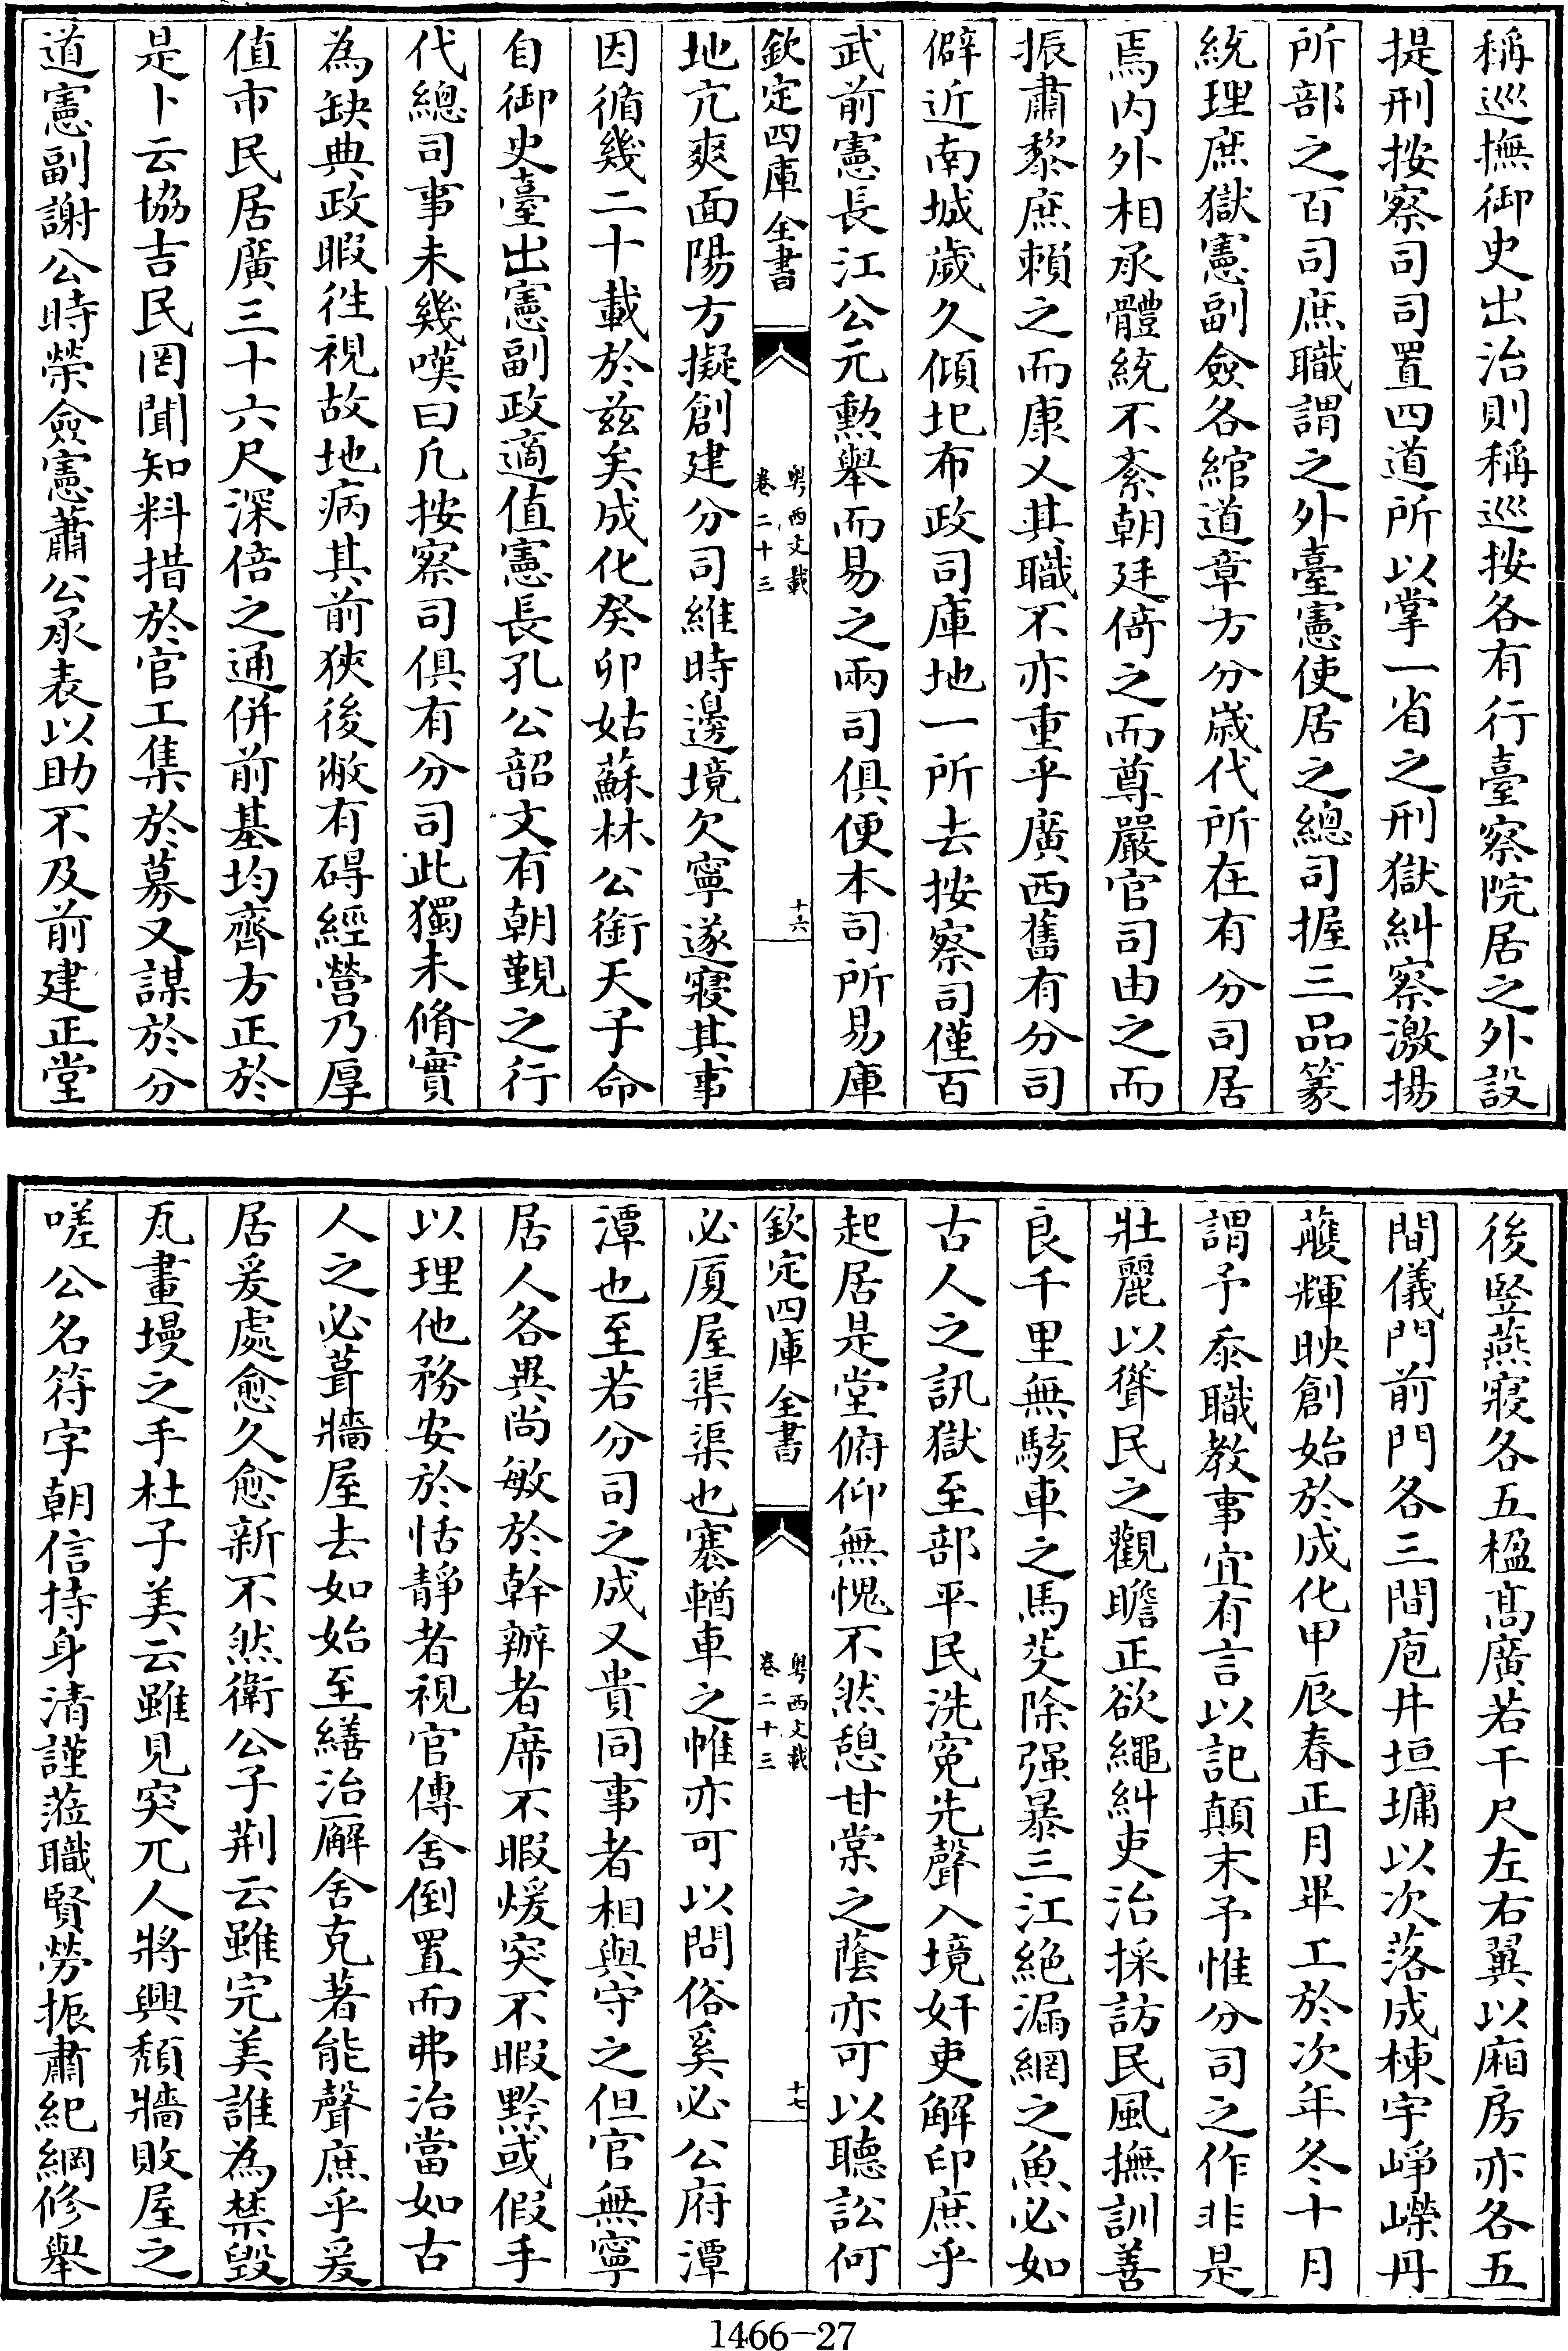 稱巡撫御史出治則稱巡按各有行臺察院居之外設
提刑按察司司置四道所以掌一省之刑獄糾察激揚
所部之百司庶職謂之外臺憲使居之總司握三品篆
統理庶獄憲副僉各綰道章方分嵗代所在有分司居
焉内外相承體統不紊朝廷倚之而尊嚴官司由之而
振肅黎庶頼之而康乂其職不亦重乎廣西舊有分司
僻近南城歲久傾圯布政司庫地一所去按察司僅百
武前憲長江公元勲舉而易之兩司俱便本司所易庫
欽定四庫全書
粤西文載
卷二十三
十六
地亢爽面陽方擬創建分司維時邊境欠寧遂寢其事
因循幾二十載於兹矣成化癸卯姑蘇林公銜天子命
自御史臺出憲副政適值憲長孔公韶文有朝覲之行
代總司事未幾嘆曰凡按察司俱有分司此獨未脩實
為缺典政暇徃視故地病其前狹後敝有碍經營乃厚
值市民居廣三十六尺深倍之通併前基均齊方正於
是卜云協吉民罔聞知料措於官工集於募又謀於分
道憲副謝公時榮僉憲蕭公承表以助不及前建正堂
後竪燕寢各五楹髙廣若干尺左右翼以廂房亦各五
間儀門前門各三間庖井垣墉以次落成棟宇崢嶸丹
雘輝映創始於成化甲辰春正月畢工於次年冬十月
謂予忝職教事宜有言以記顛末予惟分司之作非是
壯麗以聳民之觀瞻正欲繩糾吏治採訪民風撫訓善
良千里無駭車之馬芟除强暴三江絶漏網之魚必如
古人之訊獄至部平民洗寃先聲入境奸吏解印庶乎
起居是堂俯仰無愧不然憩甘棠之蔭亦可以聽訟何
欽定四庫全書
粤西文載
卷二十三
十七
必厦屋渠渠也褰輶車之帷亦可以問俗奚必公府潭
潭也至若分司之成又貴同事者相與守之但官無寧
居人各異尚敏於幹辦者席不暇煖突不暇黔或假手
以理他務安於恬靜者視官傳舍倒置而弗治當如古
人之必葺牆屋去如始至繕治廨舍克著能聲庶乎爰
居爰處愈久愈新不然衛公子荆云雖完美誰為禁毁
瓦畫墁之手杜子美云雖見突兀人將興頽牆敗屋之
嗟公名符字朝信持身清謹蒞職賢勞振肅紀綱修舉
1466-27